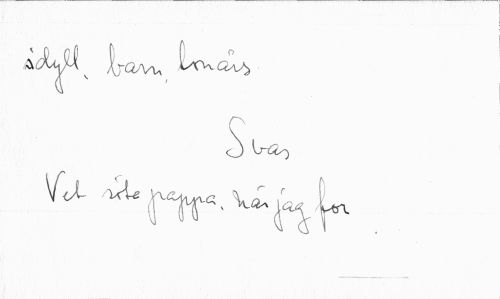 idyll, barn,
Svar
Vet söta pappa, när jag for